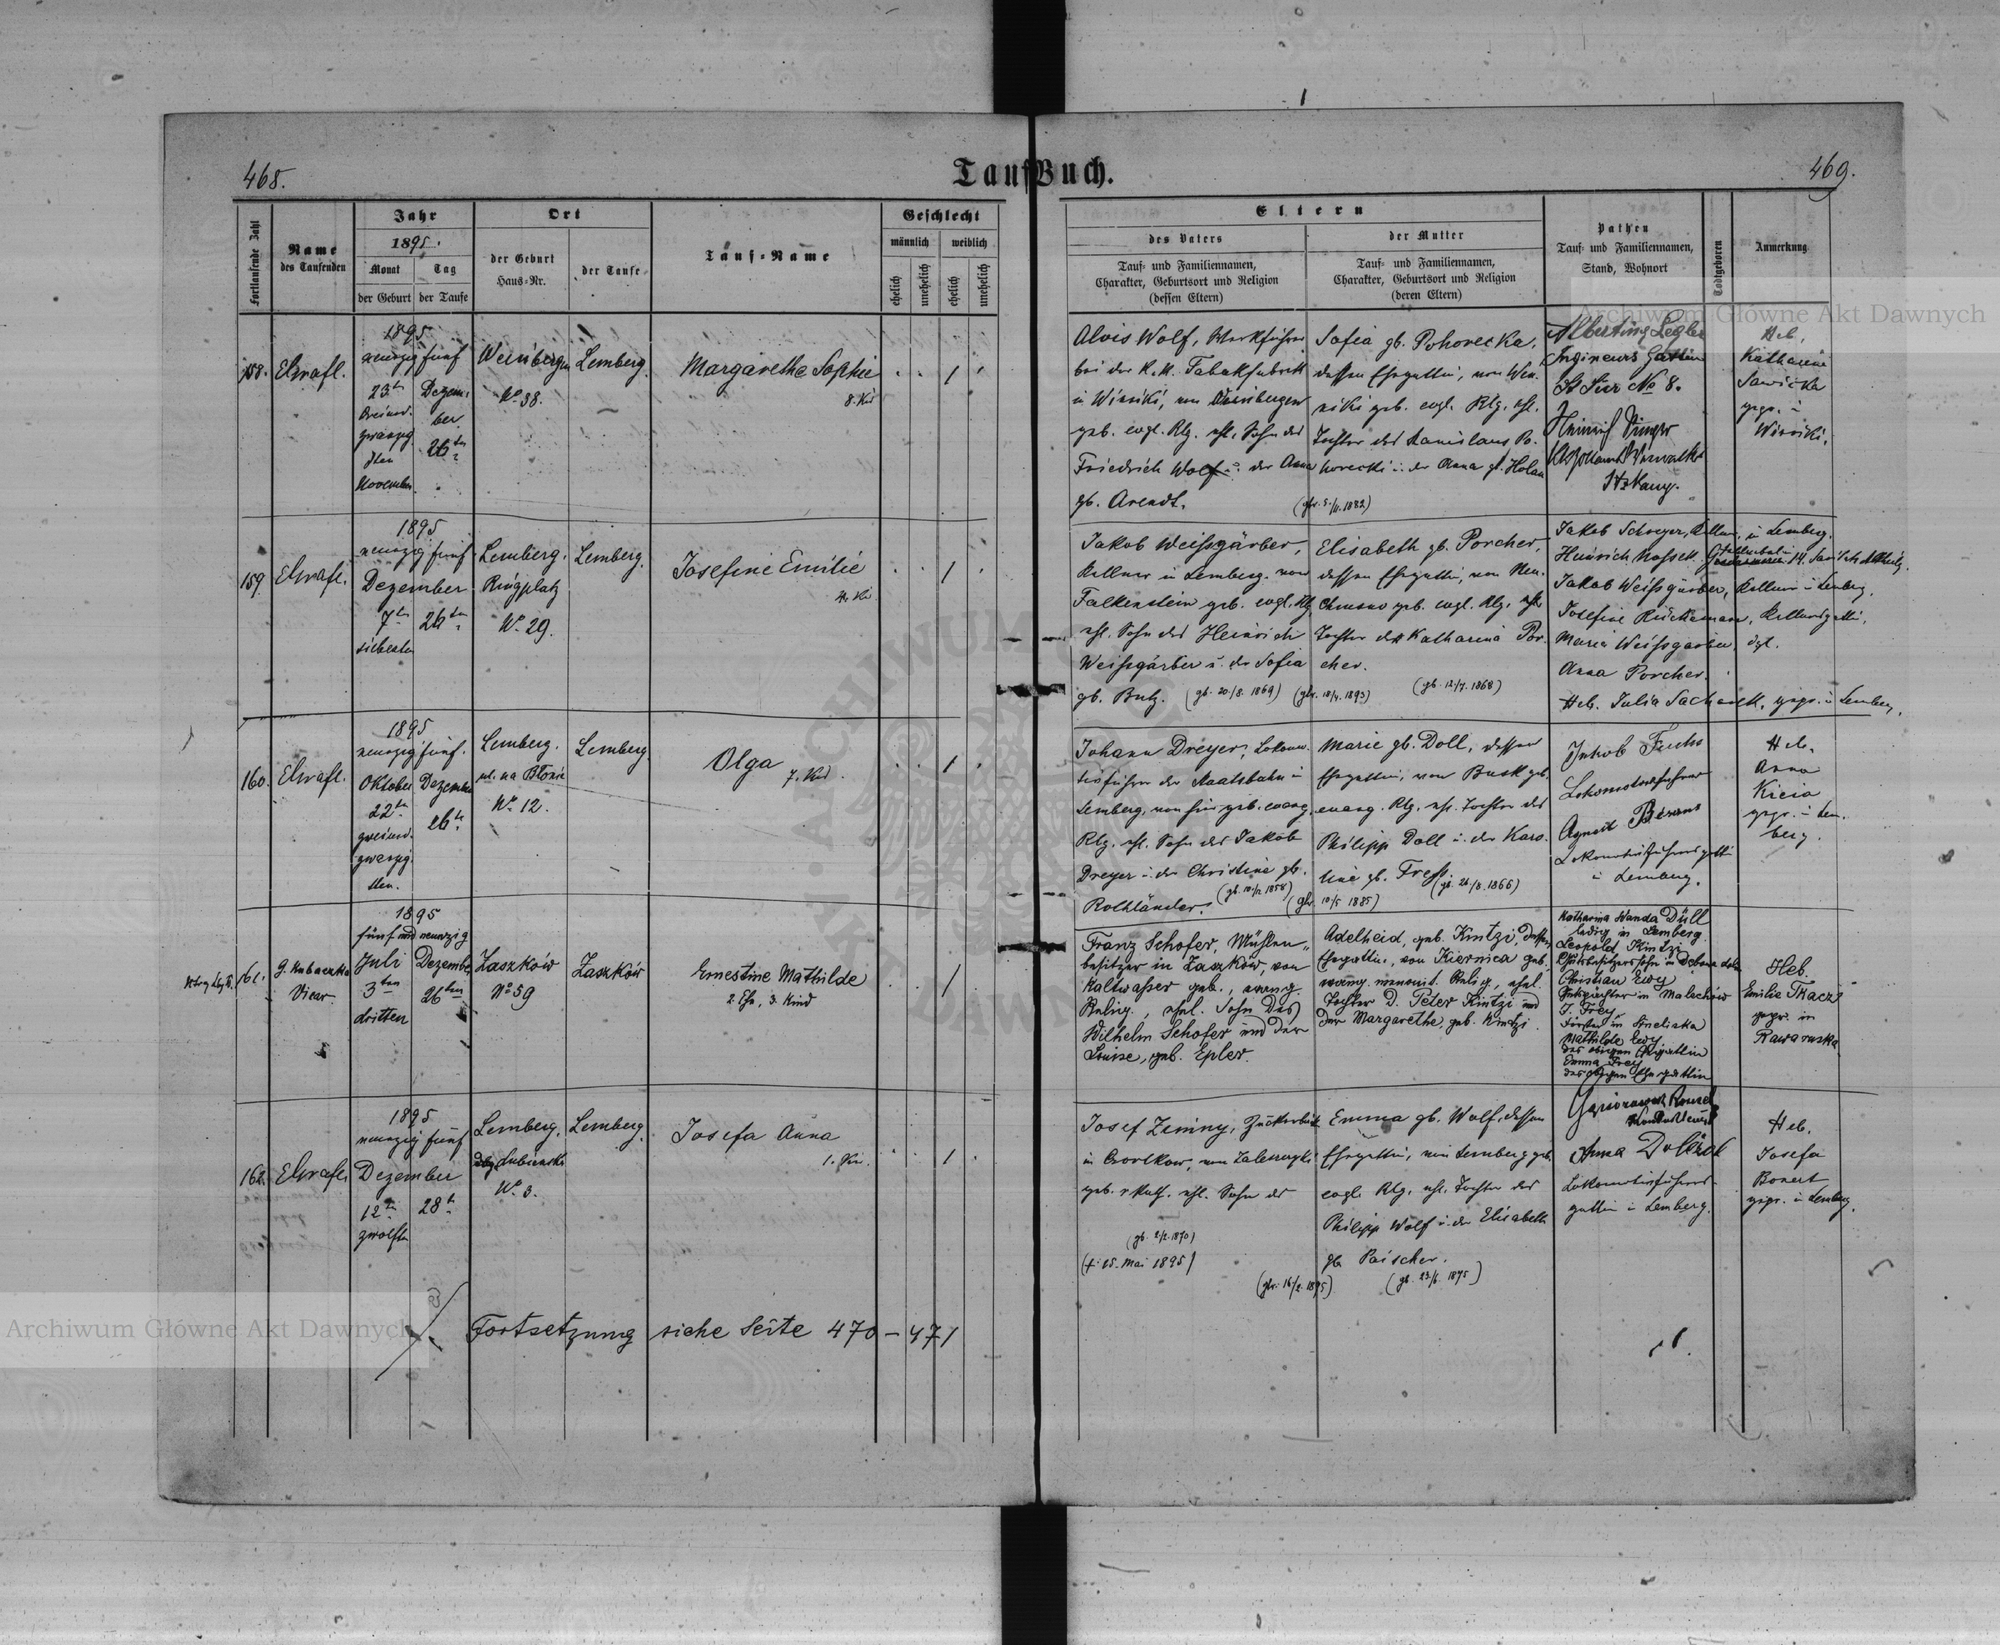 468.
Taufbuch.
469.
Fortlaufende Zahl
Name
des Taufenden
Jahr
1895.
Monat
Tag
der Geburt
der Taufe
Ort
der Geburt
Haus=Nr.
der Taufe
Tauf=Name
Geschlecht
männlich
weiblich
ehelich
unehelich
ehelich
unehelich
Eltern
des Vaters
Tauf= und Familiennamen,
Charakter, Geburtsort und Religion
(dessen Eltern)
der Mutter
Tauf= und Familiennamen,
Charakter, Geburtsort und Religion
(deren Eltern)
Pathen
Tauf= und Familiennamen,
Stand, Wohnort
Todtgeboren
Anmerkung
Archiwum Główne Akt Dawnych
158.
1895
neunzig fünf
23ten
November
Dezem=
ber
26ten
Weinbergen
No 38.
Lemberg.
Margarethe Sophie
8. Kd
Alois Wolf, Werkführer
bei der K. K. Tabakfabrik
in Winniki, von Weinbergen
geb. evgl. Rlg. ehl. Sohn des
Friedrich Wolf u. der Anna
gb. Arendt.
Sofia gb. Pohorecka,
dessen Ehegattin, von Win=
niki geb. evgl. Rlg. ehl.
Tochter des Stanislaus Po=
horecki u. der Anna gb.
Albertine Legler
Ingineurs Gattin
No 8.
Heinrich
Heb.
Katharine
Sawicka
gepr. in
Winniki.
159.
1895
neunzig fünf
Dezember
7ten
siebenten
26ten
Lemberg.
Ringplatz
No 29.
Lemberg.
Josefine Emilie
4. Kd
Jakob Weißgärber,
Kellner in Lemberg, von
Falkenstein geb. evgl. Rlg
ehl. Sohn des Heinrich
Weißgärber u. der Sofia
gb. Butz. (gb. 20/8. 1869)
Elisabeth gb. Porcher,
dessen Ehegattin, von Neu=
Chrusno geb. evgl. Rlg. ehl.
Tochter der Katharina Por=
cher.
Jakob Schreyer, Kellner, in Lemberg.
Jakob Weißgärber, Kellner in Lemberg.
Josefine Rückemann, Kellnersgattin,
Maria Weißgärber, dgl.
Anna Porcher.
Heb. Julia gepr. in Lemberg.
160.
1895
neunzig fünf.
Oktober
22ten
zweiund=
zwanzig
sten.
Dezember
26te
Lemberg.
ul. na Błonie
No 12.
Lemberg.
Olga
7. Kind.
Johann Dreyer, Lokomo=
tivführer der Staatsbahn in
Lemberg, von hier geb. evang.
Rlg. ehl. Sohn des Jakob
Dreyer u. der Christine gb.
Rothländer. (gb. 10/12 1858)
Marie gb. Doll, dessen
Ehegattin, von Busk geb.
evang. Rlg. ehl. Tochter des
Philipp Doll u. der Karo=
line gb. (gb. 26/8. 1866)
Jakob Fuchs
Lokomotivführer
Lokomotivführersgattin
in Lemberg.
Heb.
Anna
Kicia
gepr. in Lem=
berg.
161.
G. Kubaczka
Vicar.
1895
fünf und neunzig
Juli
3ten
dritten
Dezember
26ten
Zaszków
No 59
Zaszków
Ernestine Mathilde
2. Ehe, 3. Kind
Franz Schofer, Mühlen=
besitzer in Zaszków, von
Kaltwasser geb., evang.
Relig., ehel. Sohn des
Wilhelm Schofer und der
Louise, geb. Epler.
Adelheid, geb. Kintzi, dessen
Ehegattin, von Kiernica geb.
evang. menonit. Relig., ehel.
Tochter d. Peter Kintzi und
der Margarethe, geb. Kintzi.
Katharina Wanda Düll
ledig in Lemberg
Leopold Kintzi
Christian Ewy
Gutspächter in Malechów
J. Frey
Förster in
Mathilde Ewy
des obigen Ehegattin
Emma Frey
des obigen Ehegattin
Heb.
Emilie Tkacz
gepr. in
Rawa ruska
162.
1895
neunzig fünf
Dezember
12te
zwölften
28te
Lemberg.
No 3.
Lemberg.
Josefa Anna
1. Kd.
Josef Zeminy, Zuckerbäck
geb. r. kath. ehl. Sohn der
(gb. 2/2. 1870)
(† 25. Mai 1895)
Emma gb. Wolf, dessen
Ehegattin, von Lemberg geb.
evgl. Rlg. ehl. Tochter des
Philipp Wolf u. der Elisabeth
gb. Paischer.
(gb. 23/6. 1875)
Anna
Lokomotivführers=
gattin in Lemberg.
Heb.
Josefa
Bonert
gepr. in Lemberg.
Fortsetzung siehe Seite 470 – 471
Archiwum Główne Akt Dawnych